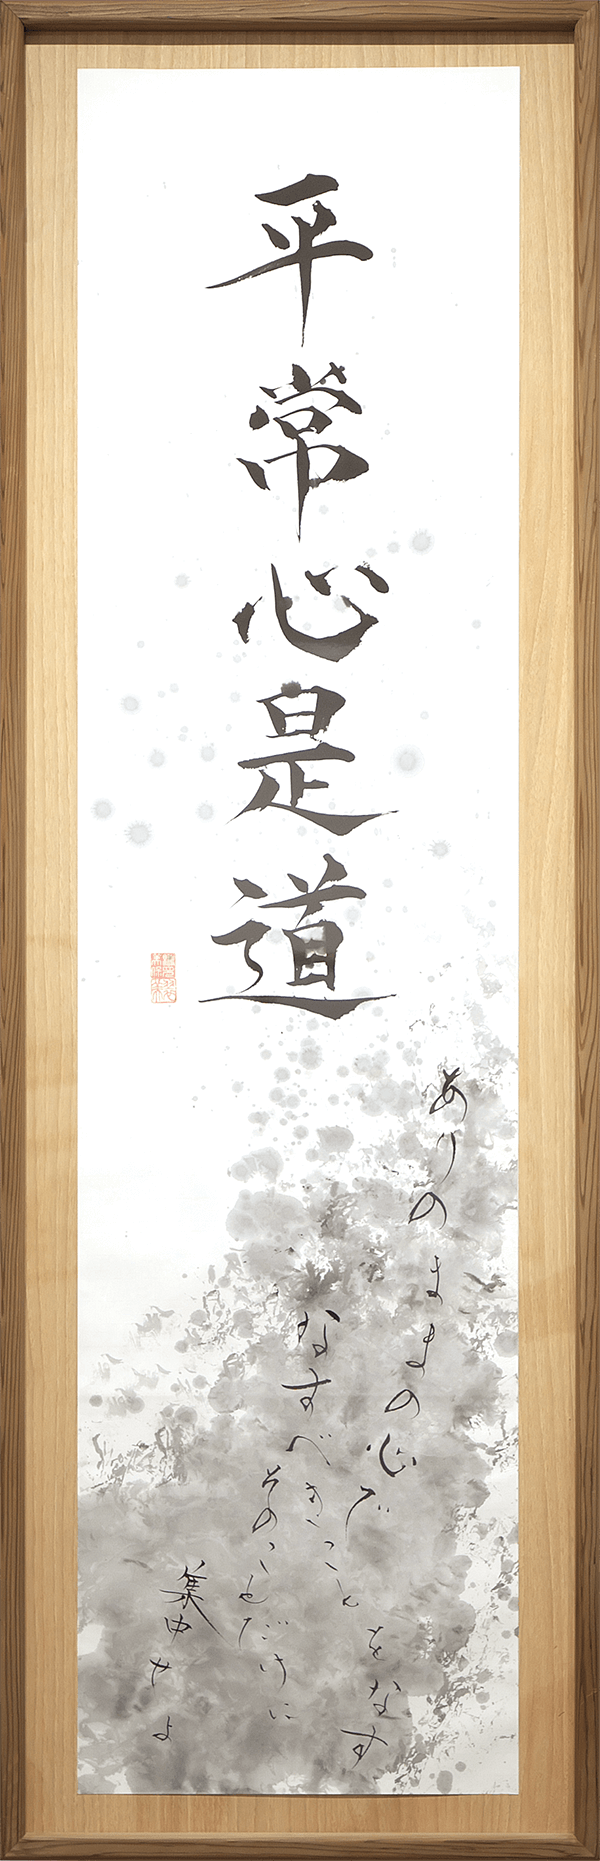 平常心是道
ありのままの心で
なすべきことをなす
そのことだけに
集中せよ